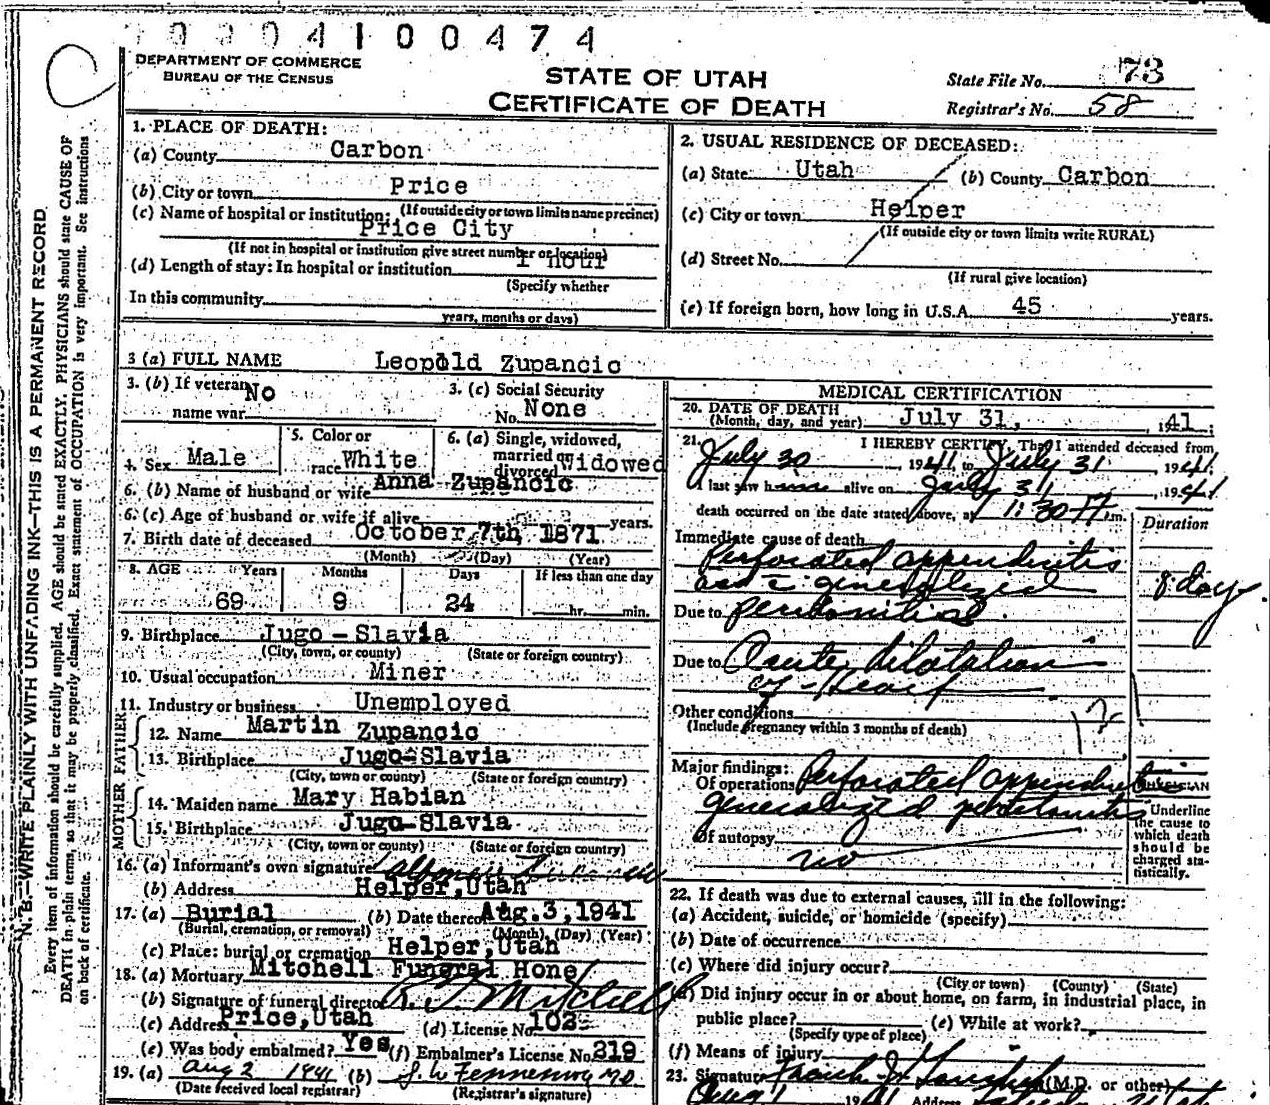 0 0 0 4 1 0 0 4 7 4
DEPARTMENT OF COMMERCE
BUREAU OF THE CENSUS
STATE OF UTAH
CERTIFICATE OF DEATH
State File No. 73
Registrar's No. 58
N. B.—WRITE PLAINLY WITH UNFADING INK—THIS IS A PERMANENT RECORD
Every item of information should be carefully supplied. AGE should be stated EXACTLY. PHYSICIANS should state CAUSE OF
DEATH in plain terms, so that it may be properly classified. Exact statement of OCCUPATION is very important. See instructions
on back of certificate.
1. PLACE OF DEATH:
(a) County Carbon
(b) City or town Price
(If outside city or town limits name precinct)
(c) Name of hospital or institution:
Price City
(If not in hospital or institution give street number or location)
(d) Length of stay: In hospital or institution 1 hour
(Specify whether
In this community
years, months or days)
2. USUAL RESIDENCE OF DECEASED:
(a) State Utah (b) County Carbon
(c) City or town Helper
(If outside city or town limits write RURAL)
(d) Street No.
(If rural give location)
(e) If foreign born, how long in U.S.A. 45 years.
3 (a) FULL NAME Leopold Zupancic
3. (b) If veteran No
name war
3. (c) Social Security
No. None
4. Sex Male
5. Color or
race White
6. (a) Single, widowed,
married or
divorced widowed
6. (b) Name of husband or wife Anna Zupancic
6. (c) Age of husband or wife if alive years.
7. Birth date of deceased October 7th, 1871
(Month) (Day) (Year)
8. AGE Years Months Days If less than one day
69 9 24 hr. min.
9. Birthplace Jugo-Slavia
(City, town, or county) (State or foreign country)
10. Usual occupation Miner
11. Industry or business Unemployed
FATHER
12. Name Martin Zupancic
13. Birthplace Jugo-Slavia
(City, town or county) (State or foreign country)
MOTHER
14. Maiden name Mary Habian
15. Birthplace Jugo-Slavia
(City, town or county) (State or foreign country)
16. (a) Informant's own signature Alfonse Zupancic
(b) Address Helper, Utah
17. (a) Burial (b) Date thereof Aug. 3, 1941
(Burial, cremation, or removal) (Month) (Day) (Year)
(c) Place: burial or cremation Helper, Utah
18. (a) Mortuary Mitchell Funeral Home
(b) Signature of funeral director R. J. Mitchell
(c) Address Price, Utah (d) License No. 102
(e) Was body embalmed? Yes (f) Embalmer's License No. 319
19. (a) Aug 2 1941 (b)
(Date received local registrar) (Registrar's signature)
MEDICAL CERTIFICATION
20. DATE OF DEATH
(Month, day, and year) July 31, 1941
21. I HEREBY CERTIFY, That I attended deceased from
July 30, 1941, to July 31 1941.
I last saw him alive on July 31, 1941
death occurred on the date stated above, at 1:30 P m.
Duration
Immediate cause of death
Perforated appendicitis
and c generalized 8 days
Due to peritonitis
Due to Acute dilatation
of Heart
Other conditions
(Include pregnancy within 3 months of death)
Major findings:
Of operations Perforated appendicitis
generalized peritonitis
Of autopsy
no
PHYSICIAN
Underline
the cause to
which death
should be
charged sta-
tistically.
22. If death was due to external causes, fill in the following:
(a) Accident, suicide, or homicide (specify)
(b) Date of occurrence
(c) Where did injury occur?
(City or town) (County) (State)
(d) Did injury occur in or about home, on farm, in industrial place, in
public place? (e) While at work?
(Specify type of place)
(f) Means of injury
23. Signature (M.D. or other)
Aug 1 1941 Address